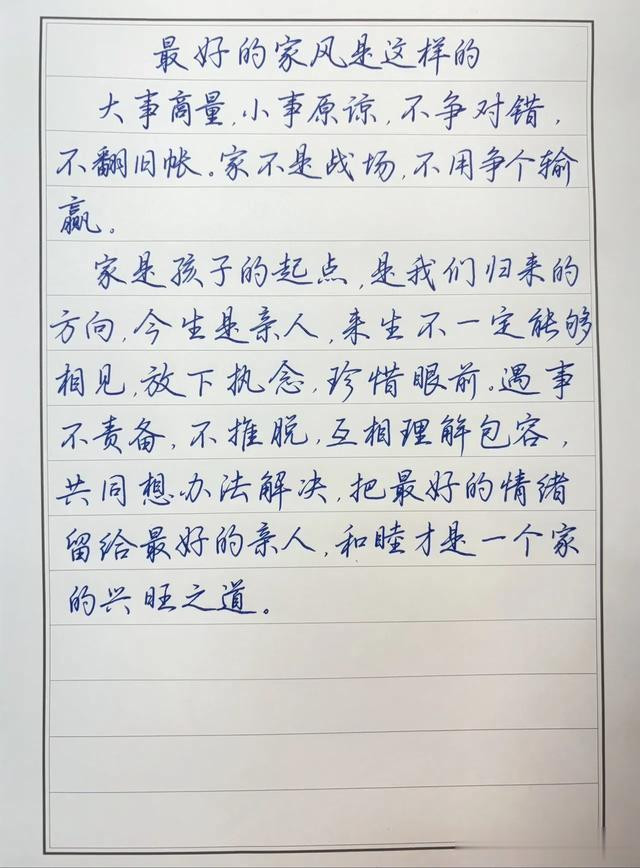 最好的家风是这样的
大事商量,小事原谅,不争对错,
不翻旧帐。家不是战场,不用争个输
赢。
家是孩子的起点,是我们归来的
方向,今生是亲人,来生不一定能够
相见,放下执念,珍惜眼前。遇事
不责备,不推脱,互相理解包容,
共同想办法解决,把最好的情绪
留给最好的亲人,和睦才是一个家
的兴旺之道。